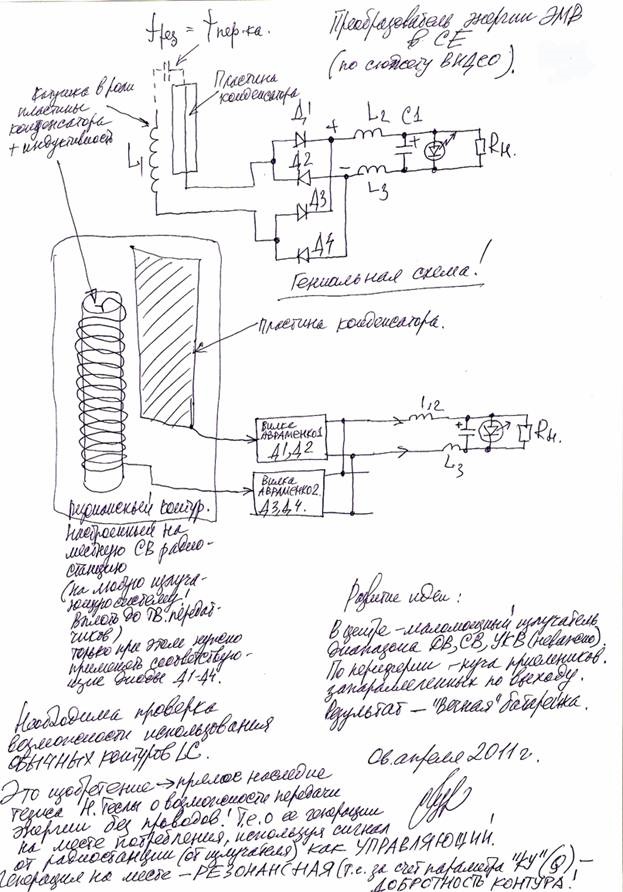 fрез = fпер-ка.
Преобразователь энергии ЭМВ
в СЕ
(по сюжету ВИДЕО).
Катушка в роли
пластины
конденсатора
+ индуктивность
Пластина
конденсатора
L1
Д1
Д2
Д3
Д4
+
-
L2
C1
+
L3
Rн.
Гениальная схема!
Пластина конденсатора.
Вилка
Авраменко1
Д1, Д2
Вилка
Авраменко2
Д3, Д4.
L2
+
L3
Rн.
контур.
Настроенный на
местную СВ радио-
станцию
(на любую излуча-
ющую систему!
Вплоть до ТВ. передат-
чиков)
только при этом нужно
применять соответствую-
щие диоды Д1-Д4.
Развитие идеи:
В центре - маломощный излучатель
диапазона ДВ, СВ, УКВ (неважно).
По периферии - куча приемников.
запараллеленных по выходу.
Результат - "Вечная" батарейка.
Необходима проверка
возможности использования
обычных контуров LC.
06 апреля 2011 г.
Это изобретение → прямое наследие
тезиса Н. Теслы о возможности передачи
энергии без проводов! Т.е. о ее генерации
на месте потребления, используя сигнал
от радиостанции (от излучателя) как УПРАВЛЯЮЩИЙ.
Генерация на месте - РЕЗОНАНСНАЯ (т.е. за счет параметра "КУ" (Q) -
ДОБРОТНОСТЬ КОНТУРА!